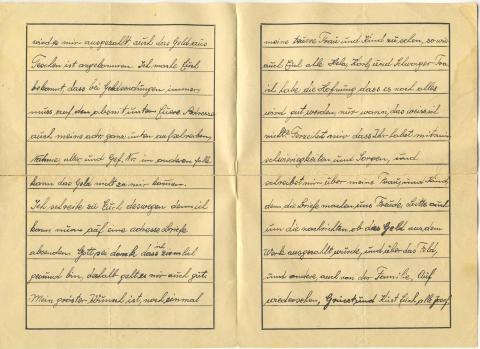 wird mir ausgezahlt, auch das Geld aus
Teschen ist angekommen. Ich mache Euch
bekannt, dass bei Geldsendungen immer
muss auf den abschnit unter Euere Adresse
auch meine adr. ganz unten aufschreiben,
Nahme, alter, und Gef. Nr. im anderen falle
kann das Geld nicht zu mir kommen.
Ich schreibe zu Euch deswegen denn ich
kann nur auf eine adresse Briefe
absenden. Gott sei dank dass ich
gesund bin, deshalb geht es mir auch gut.
Mein gröster Wunsch ist, noch einmal
meine teuere Frau und Kind zu sehen, so wie
auch Euch alle. Hela, Karl, und Schwager
ich habe die Hofnung dass es noch alles
wird gut werden, nur wann, das weis ich
nicht. Verzeiht mir dass Ihr habet mit mir
schwerigkeiten und Sorgen, und
schreibet mir über meine Frau, und Kind,
denn die Briefe machen uns Freude. Bitte auch
um die nachrichten ob das Geld aus dem
Werk ausgezahlt würde, und über das Feld,
und andere auch von der Familie. Auf
wiedersehen, Grüsst und Küst Euch alle Josef